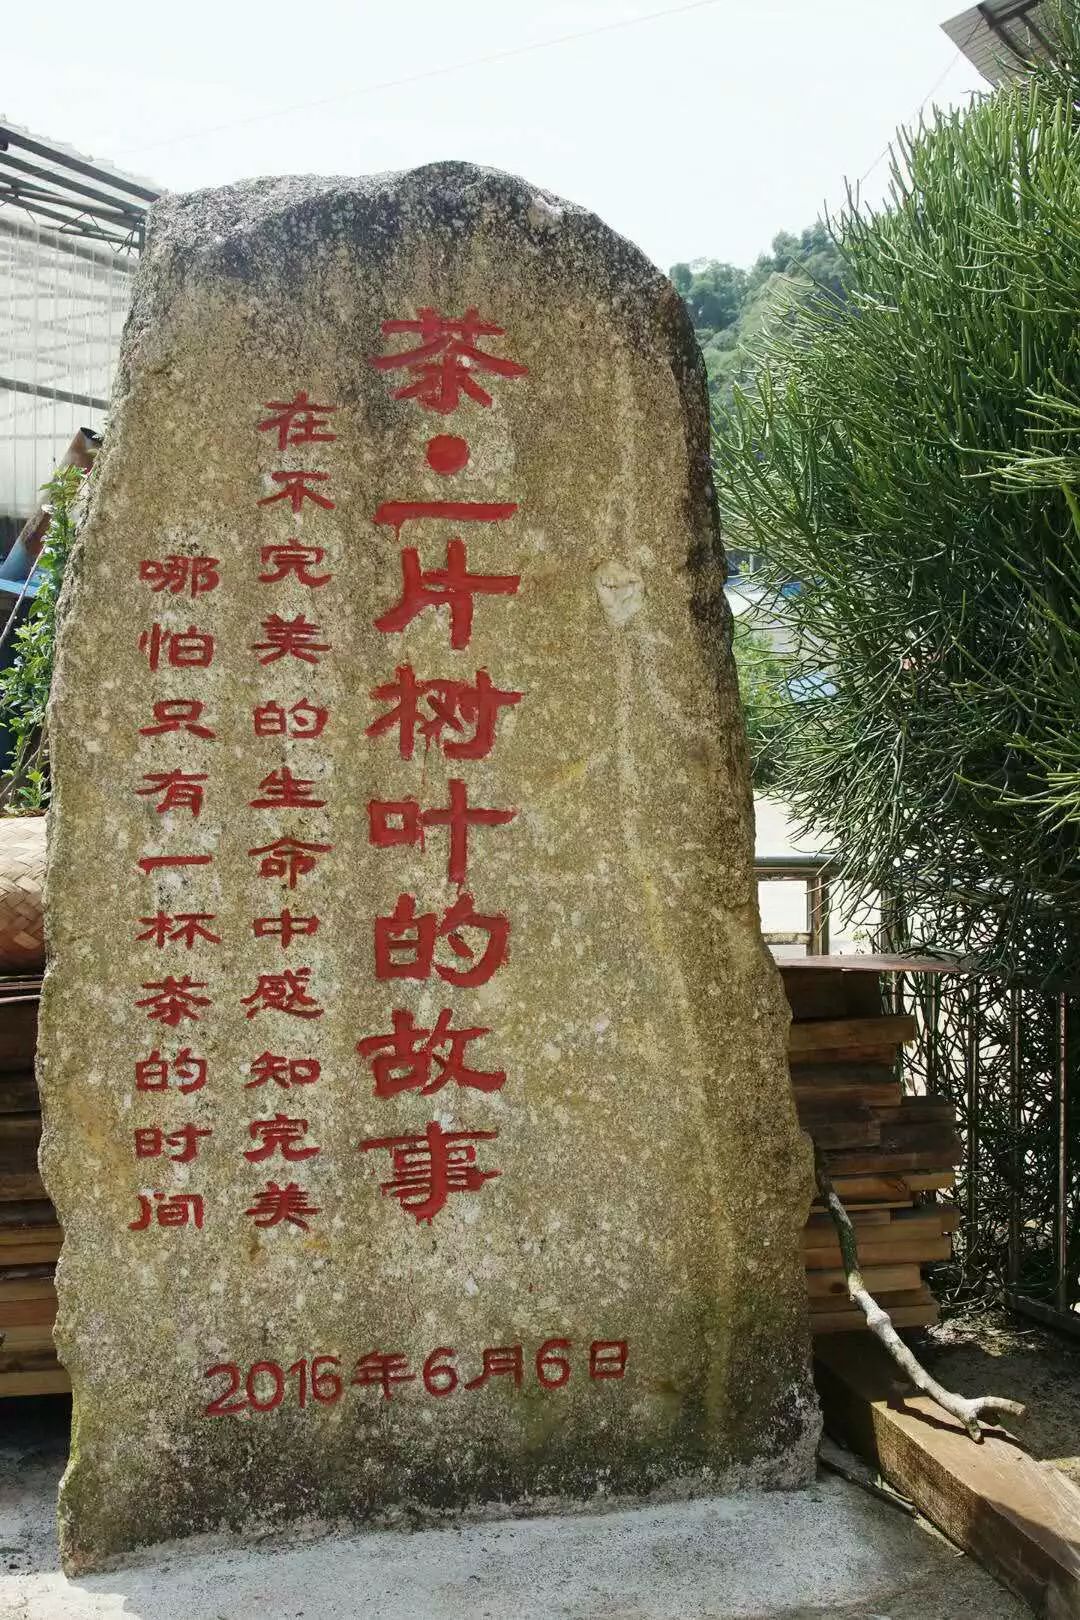 茶·一片树叶的故事
在不完美的生命中感知完美
哪怕只有一杯茶的时间
2016年6月6日